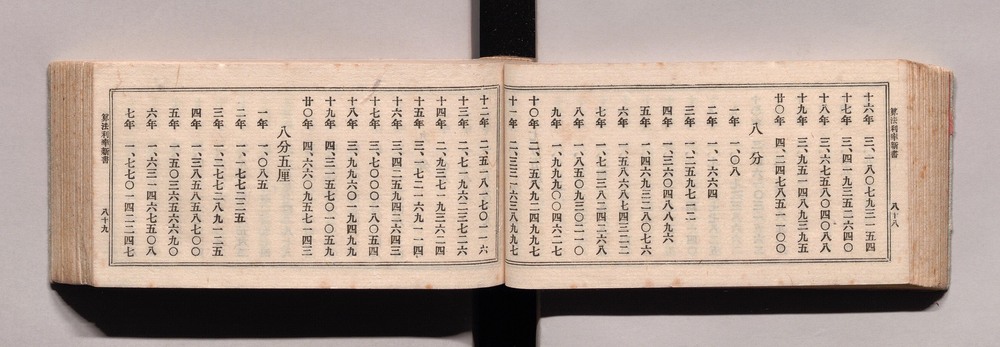 算法利率新書 八十八
十六年 三、一八〇七九三一五四
十七年 三、四一九三五二六四〇
十八年 三、六七五八〇四〇八八
十九年 三、九五一四八九三九五
廿〇年 四、二四七八五一一〇〇
八分
一年 一、〇八
二年 一、一六六四
三年 一、二五九七一二
四年 一、三六〇四八八九六
五年 一、四六九三二八〇七六
六年 一、五八六八七四三二二
七年 一、七一三八二四二六八
八年 一、八五〇九三〇二一〇
九年 一、九九九〇〇四六二七
十〇年 二、一五八九二四九九七
十一年 二、三三一六三八九九七
十二年 二、五一八一七〇一一六
十三年 二、七一九六二三七二六
十四年 二、九三七一九三六二四
十五年 三、一七二一六九一一四
十六年 三、四二五九四二六四三
十七年 三、七〇〇〇一八〇五四
十八年 三、九九六〇一九四九九
十九年 四、三一五七〇一〇五九
廿〇年 四、六六〇九五七一四三
八分五厘
一年 一、〇八五
二年 一、一七七二二五
三年 一、二七七二八九一二五
四年 一、三八五八五八七〇〇
五年 一、五〇三六五六六九〇
六年 一、六三一四六七五〇八
七年 一、七七〇一四二二四七
算法利率新書 八十九